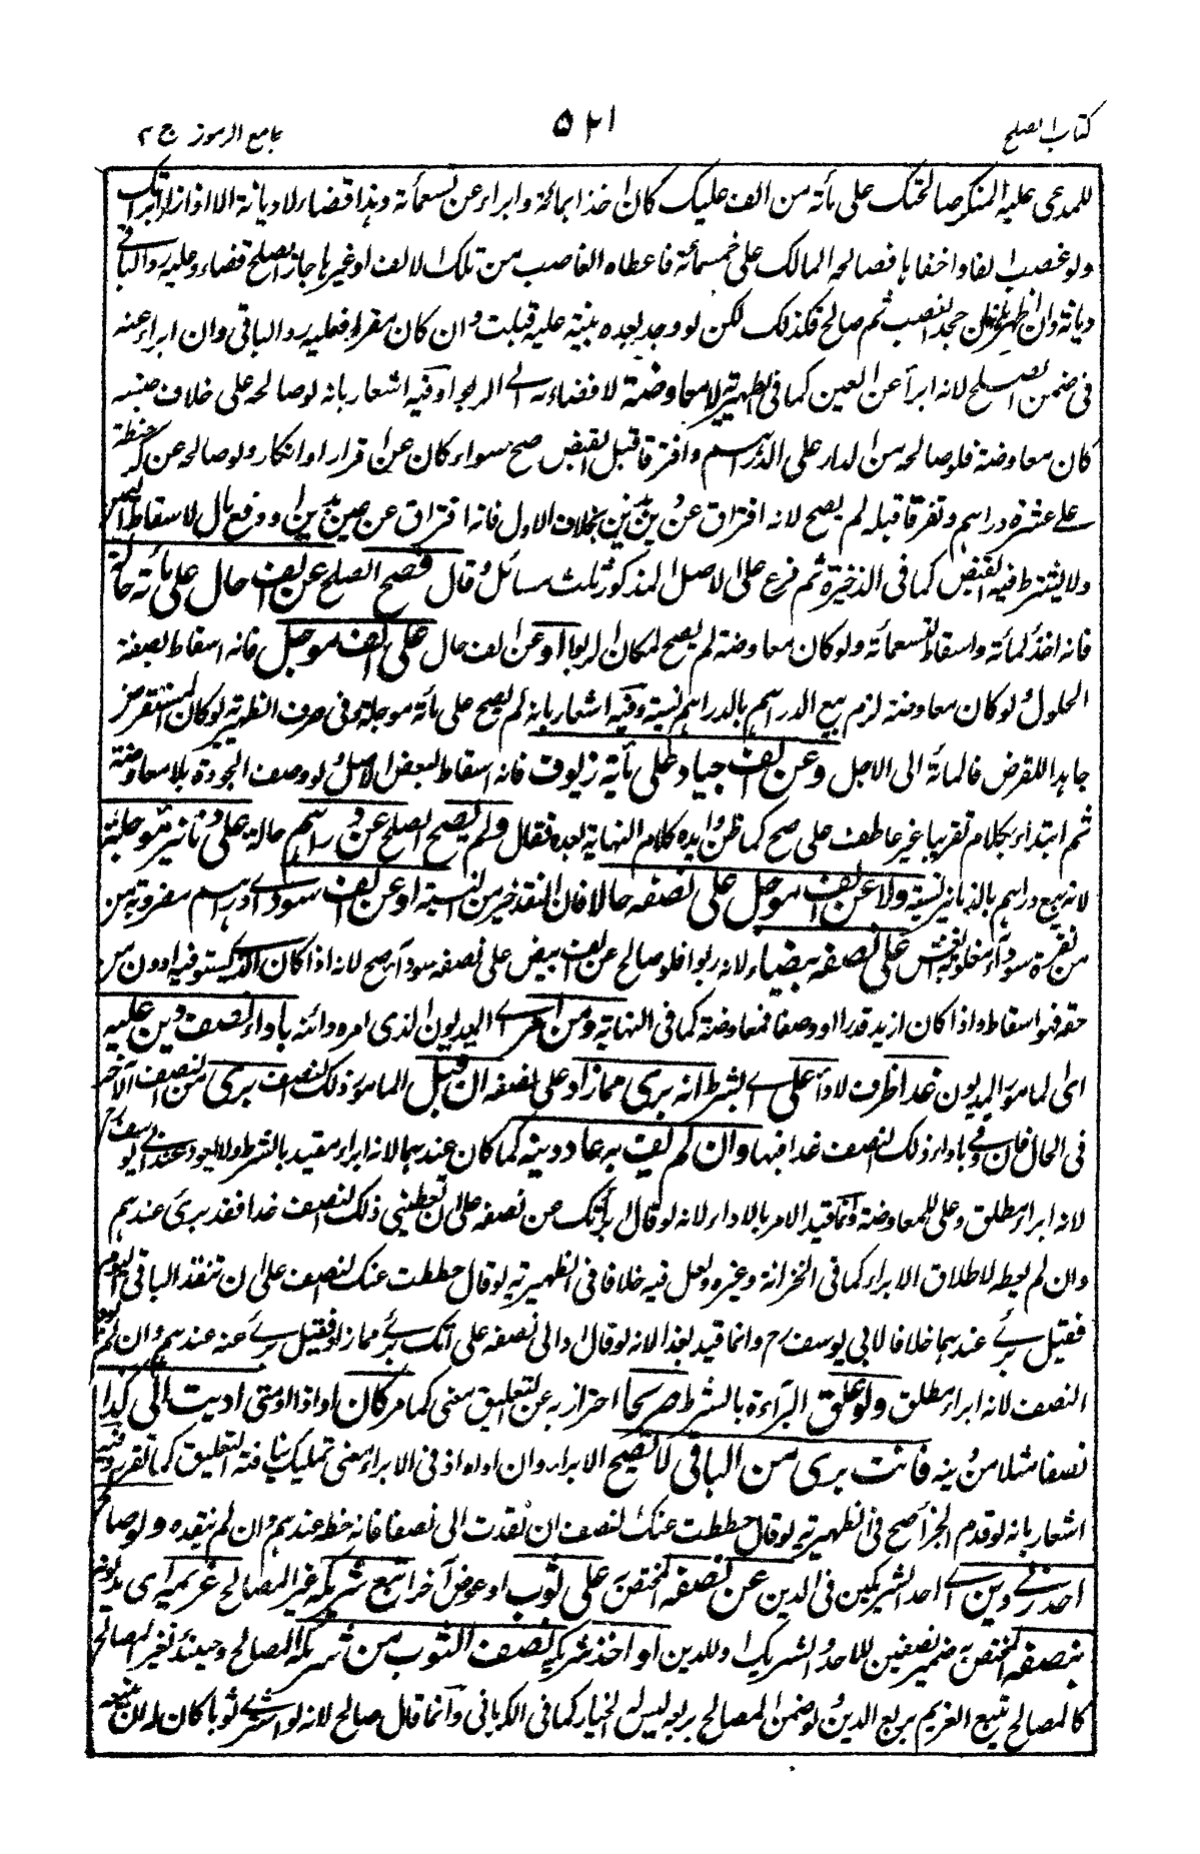 كتاب الصلح ٥٢١ جامع الرموز ج ٢
للمدعى عليه المنكر صالحتك على مأة من الف عليك كان اخذا بمائة وابراء عن تسعمأة وهذا قضاء لا ديانة الا اذا زاد ابرأتك
ولو غصب الفا واخفاها فصالحه المالك على خمسمائة فاعطاه الغاصب من تلك الالف او غيرها جاز الصلح قضاء وعليه رد الباقي
ديانة وان جحد الغصب ثم صالح فكذلك لكن لو وجد بعده بينة عليه قبلت وان كان مقرا فعليه رد الباقى وان ابراء عنه
فى ضمن الصلح لانه ابرأ عن العين كما فى الظهيرية لا معاوضة لافضاءه الى الربوا وفيه اشعار بانه لو صالحه على خلاف جنسه
كان معاوضة فلو صالحه من الدار على الدراهم وافترقا قبل القبض صح سواء كان عن اقرار او انكار ولو صالحه عن كر حنطة
على عشرة دراهم وتفرقا قبله لم يصح لانه افتراق عن دين بدين بخلاف الاول فانه افتراق عن عين بدين او دفع مال لاسقاط اليمين
ولا يشترط فيه القبض كما فى الذخيرة ثم فرع على الاصل المذكور ثلث مسائل وقال فصح الصلح عن الف حال على مأة حالة
فانه اخذ لمائة واسقاط لتسعمأة ولو كان معاوضة لم يصح لمكان الربوا او عن الف حال على الف موجل فانه اسقاط لصفة
الحلول ولو كان معاوضة لزم بيع الدراهم بالدراهم نسية وفيه اشعار بانه لم يصح على مأة موجلة وفى صرف الظهيرية لو كان المستقرض
جاحدا للقرض فالمأة الى الاجل وعن الف جياد على مأية زيوف فانه اسقاط لبعض الاصل ولوصف الجودة بلا معاوضة
ثم ابتداء بكلام تفريعا غير عاطف على صح كما ظن وايده كلام النهاية بعده فقال ولم يصح الصلح عن دراهم حالة على دنانير موجلة
لانه بيع دراهم بالدنانير نسية ولا عن الف موجل على نصفه حالا فان النقد خير من النسية او عن الف سود اى دراهم مضروبة من
من نقرة سوداء مغلوبة الغش على نصفه بيضاء لانه ربوا فلو صالح عن الف ابيض على نصفه سودا يصح لانه اذا كان الذى يستوفيه ادون من
حقه فهو اسقاط واذا كان ازيد قدرا او وصفا فمعاوضة كما فى النهاية ومن امر اى المديون الذى امره دائنه باداء نصف دين عليه
اى المامور المديون غدا ظرف لاداء على اى بشرط انه برى مما زاد على نصفه ان قبل المامور ذلك النصف برى من النصف الآخر
فى الحال فان وفى باداء ذلك النصف غدا فبها وان لم يف به عاد دينه كما كان عندهما لانه ابراء مقيد بالشرط ولا يعود عند ابى يوسف رح
لانه ابراء مطلق وعلى للمعاوضة وانما قيد الامر بالاداء لانه لو قال ابرأتك من نصفه على ان تعطينى ذلك النصف غدا فقد برئ عندهم
وان لم يعط لاطلاق الابراء كما فى الخزانة وغيره ولعل فيه خلافا فى الظهيرية لو قال حططت عنك النصف على ان تنقد الباقى اليوم
فقبل برئ عندهما خلافا لابى يوسف رح وانما قيد بغدا لانه لو قال ادا الى نصفه على انك برئ مما زاد فقبل برئ عنه عندهم وان لم يؤد
النصف لانه ابراء مطلق ولو علق البراءة بالشرط صريحا احتراز به عن التعليق معنى كما مر كان او اذا او متى اديت الى كذا
نصفا مثلا من دينه فانت برى من الباقى لا يصح الابراء وان اداه اذ فى الابراء معنى تمليك ينافه التعليق كما تقرر وفيه
اشعار بانه لو قدم الجزاء صح فى الظهيرية لو قال حططت عنك النصف ان نقدت الى نصفا فانه حط عندهم وان لم ينقده ولو صالح
احد ربى دين اى احد الشريكين فى الدين عن نصفه المختص على ثوب او عوض آخر اتبع شريكه غير المصالح غريمه اى مديونه
بنصفه المختص به ضمير نصفين للاحد والشريك او للدين او اخذ شريكه نصف الثوب من شريكه المصالح وحينئذ لغير المصالح
كالمصالح تتبع الغريم بربع الدين ولو ضمن المصالح ربعه ليس له الخيار كما فى الكرمانى وانما قال صالح لانه لو اشترى ثوبا كان له ان